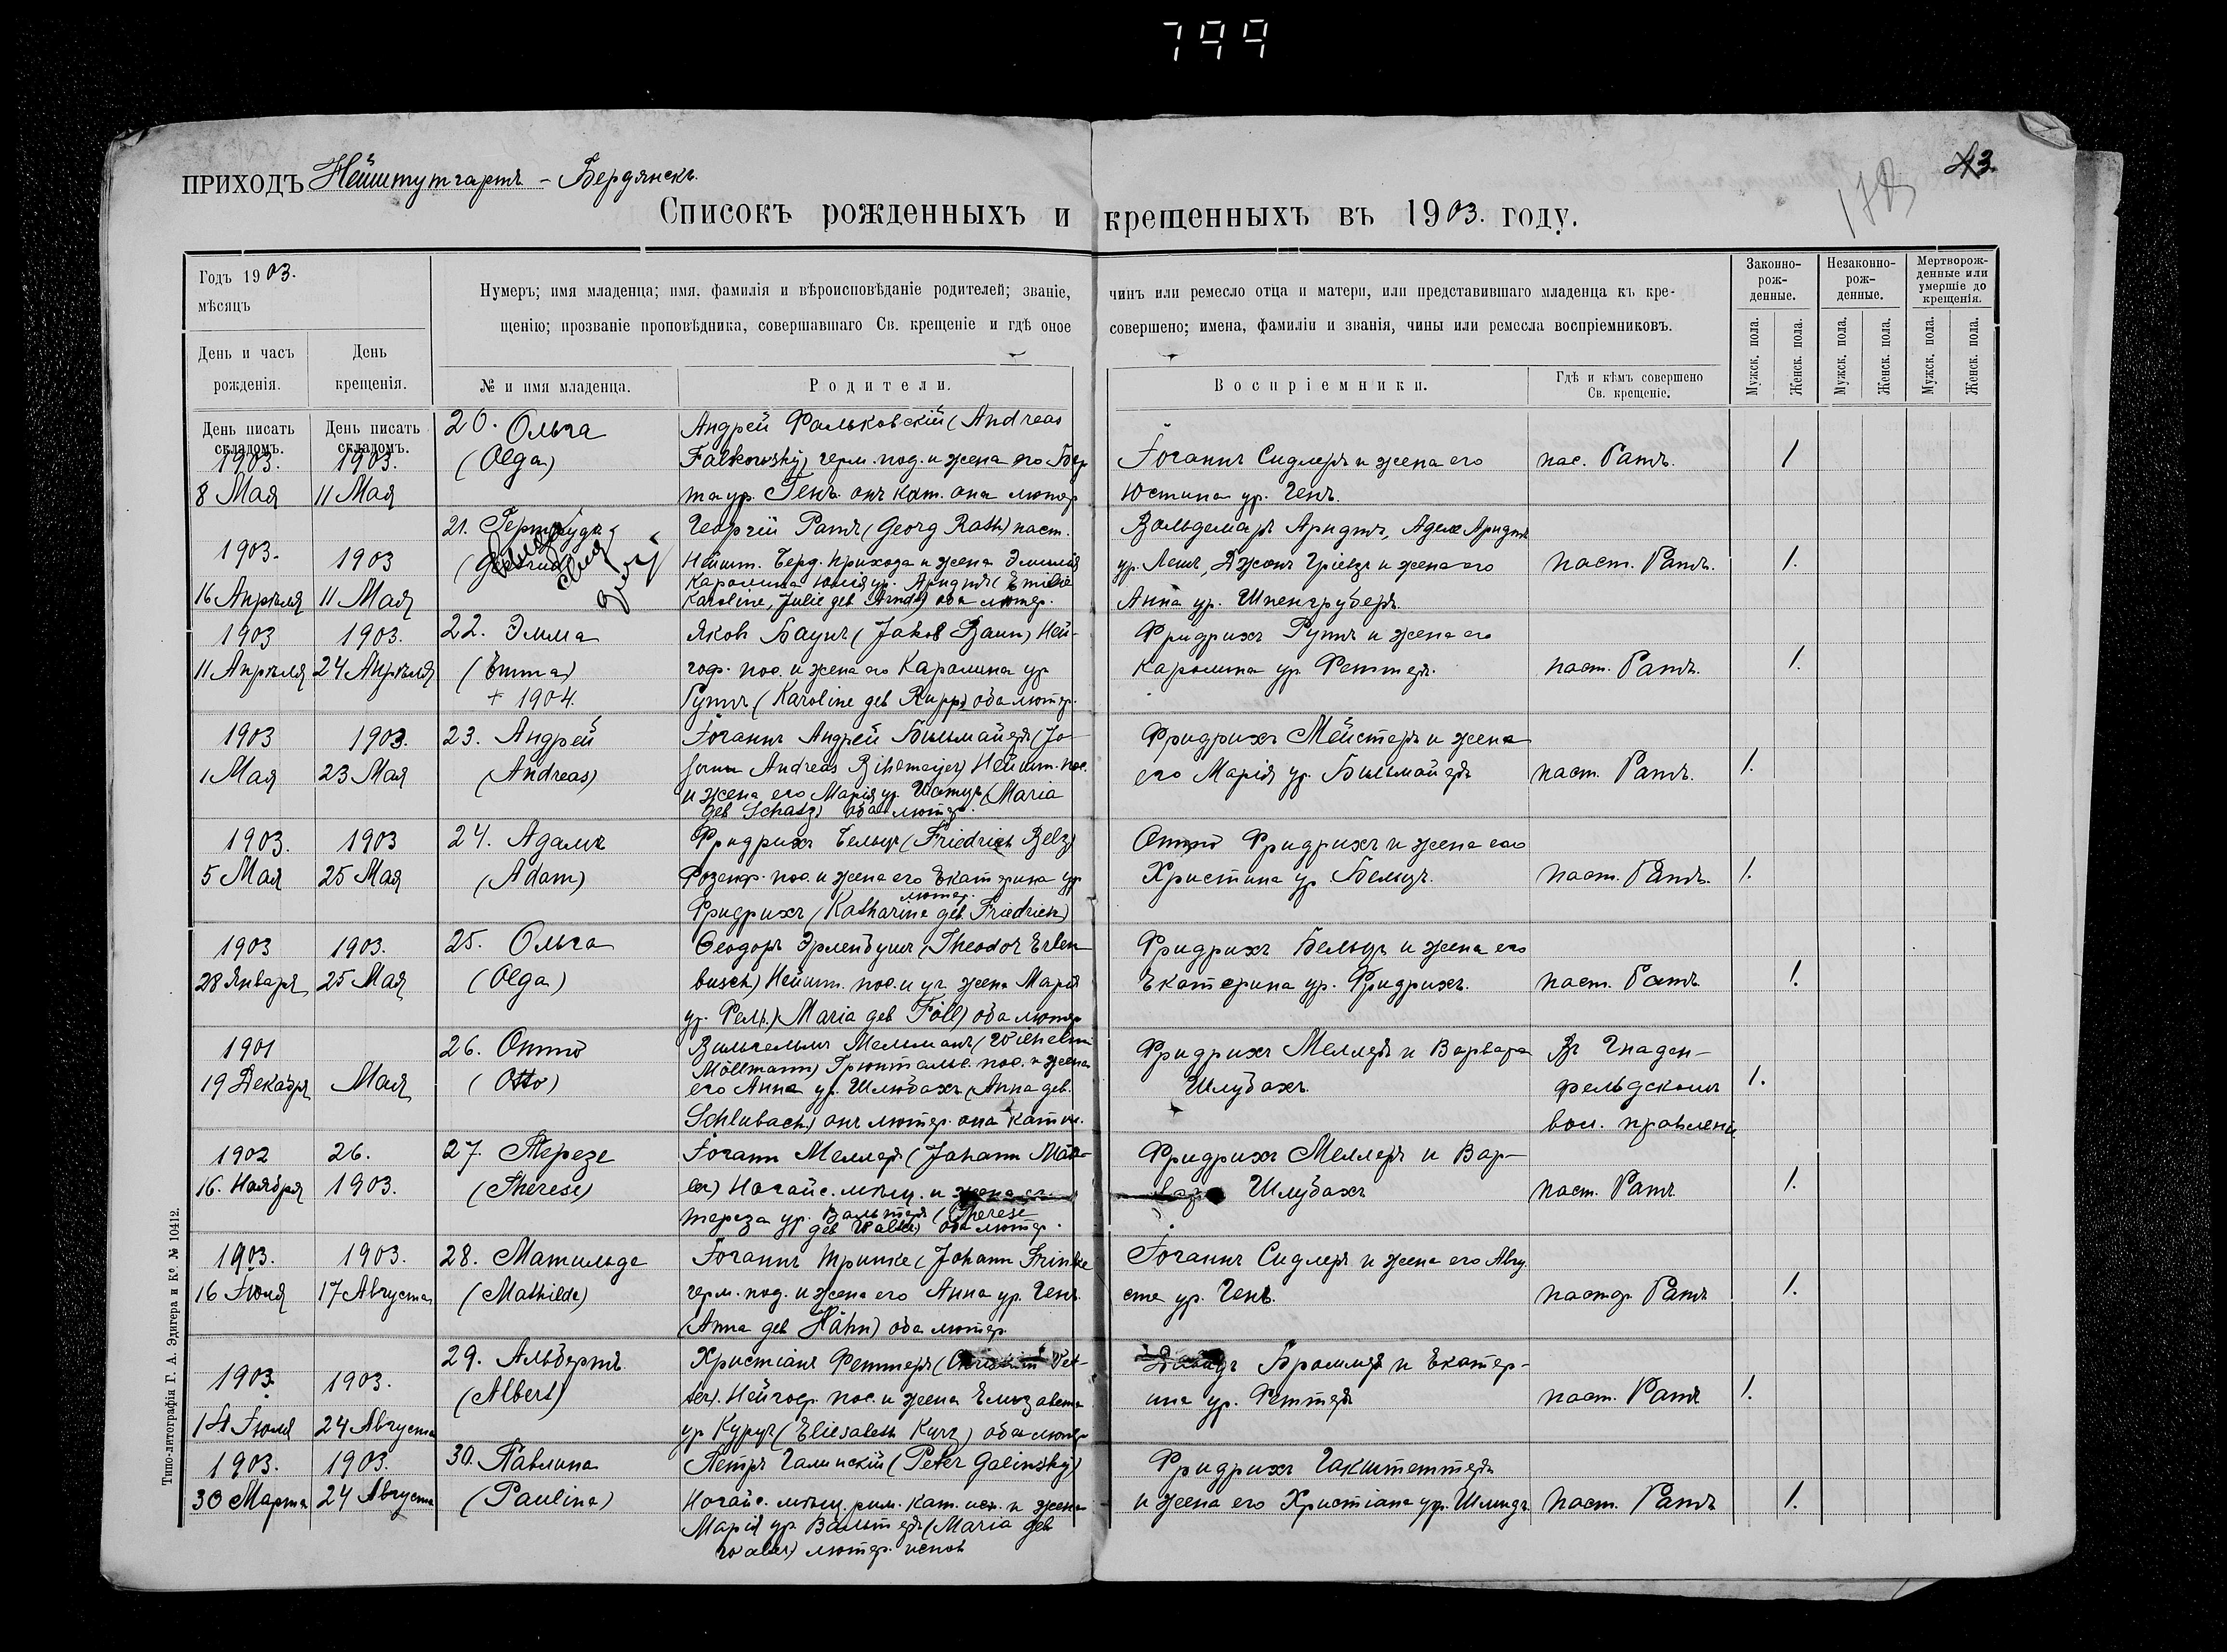 799
ПРИХОДЪ Нейштутгартъ - Бердянскъ.
43.
178
Списокъ рожденныхъ и крещенныхъ въ 1903. году.
Годъ 1903.
мѣсяцъ
День и часъ рожденія.
День крещенія.
Нумеръ; имя младенца; имя, фамилія и вѣроисповѣданіе родителей; званіе, чинъ или ремесло отца и матери, или представившаго младенца къ кре-
щенію; прозваніе проповѣдника, совершавшаго Св. крещеніе и гдѣ оное совершено; имена, фамиліи и званія, чины или ремесла воспріемниковъ.
№ и имя младенца.
Родители.
Воспріемники.
Гдѣ и кѣмъ совершено
Св. крещеніе.
Законно-
рож-
денные.
Незаконно-
рож-
денные.
Мертворож-
денные или
умершіе до
крещенія.
Мужск. пола.
Женск. пола.
Мужск. пола.
Женск. пола.
Мужск. пола.
Женск. пола.
День писать
складомъ.
День писать
складомъ.
1903.
8 Мая
1903.
11 Мая
20. Ольга
(Olga)
Андрей Фальковскій (Andreas
Falkowsky) герм. под. и жена его Бер
та ур. Генъ. онъ кат. она лютер
Іоганнъ Сидлеръ и жена его
Юстина ур. Генъ.
пас. Ратъ.
1
1903.
16 Апрѣля
1903
11 Мая
21. Гертруда
(Gertrud)
Георгій Ратъ (Georg Rath) паст.
Нейшт. Берд. прихода и жена Эмилія
Каролина Юлія ур. Арндтъ (Emilie
Karoline, Julie geb Arndt) оба лютер.
Вольдемаръ Арндтъ, Адель Арндтъ
ур. Лешъ, Джонъ Гріевзъ и жена его
Анна ур. Шпенгруберъ.
паст. Ратъ.
1.
1903
11 Апрѣля
1903.
24 Апрѣля
22. Эмма
(Emma)
+ 1904.
Яковъ Баунъ (Jakob Baun) Ней-
гоф. пос. и жена его Каролина ур
Руппъ (Karoline geb Rupp) оба лютер.
Фридрихъ Руппъ и жена его
Каролина ур. Феттеръ.
паст. Ратъ.
1.
1903
1 Мая
1903.
23 Мая
23. Андрей
(Andreas)
Іоганнъ Андрей Бильмайеръ (Jo-
hann Andreas Bihlmeijer) Нейшт. пос.
и жена его Марія ур. Шатцъ (Maria
geb Schatz) оба лютер.
Фридрихъ Мейстеръ и жена
его Марія ур. Бильмайеръ
паст. Ратъ.
1.
1903.
5 Мая
1903
25 Мая
24. Адамъ
(Adam)
Фридрихъ Бельцъ (Friedrich Belz)
Розенф. пос. и жена его Екатерина ур
лютер.
Фридрихъ (Katharine geb Friedrich)
Оттo Фридрихъ и жена его
Христина ур Бельцъ.
паст. Ратъ.
1.
1903
28 Января
1903.
25 Мая
25. Ольга
(Olga)
Теодоръ Эрленбушъ (Theodor Erlen-
busch) Нейшт. пос. и уч. жена Марія
ур. Фелль (Maria geb Föll) оба лютер
Фридрихъ Бельцъ и жена его
Екатерина ур. Фридрихъ.
паст. Ратъ
1.
1901
19 Декабря
Мая
26. Отто
(Otto)
Вильгельмъ Мельманъ (Wilhelm
Möllmann) Грюнтальс. пос. и жена
его Анна ур. Шлюбахъ (Anna geb.
Schlubach) онъ лютер. она катол.
Фридрихъ Меллеръ и Варвара
Шлубахъ.
Въ Гнаден-
фельдскомъ
вол. правлени
1.
1902
16. Ноября
26.
1903.
27. Терезе
(Therese)
Іоганн Меллеръ (Johann Möl-
ler) Ногайс. мѣщ. и жена его
тереза ур. Вальтеръ (Therese
geb Walter) оба лютер.
Фридрихъ Меллеръ и Вар-
Шлубахъ
паст. Ратъ
1.
1903.
16 Іюля
1903.
17 Августа
28. Матильде
(Mathilde)
Іоганнъ Тринке (Johann Trinke
герм. под. и жена его Анна ур. Генъ.
(Anna geb Hähn) оба лютер
Іоганнъ Сидлеръ и жена его Авгу
сте ур. Генъ.
пастор Ратъ
1.
1903.
14 Іюля
1903.
24 Августа
29. Альбертъ
(Albert)
Христіанъ Феттеръ (Christian Vet-
ter). Нейгоф. пос. и жена Елизавета
ур Курцъ (Eliesabeth Kurz) оба лютер
Давидъ Броммеръ и Екатер-
ина ур. Феттеръ
паст. Ратъ
1.
1903.
30 Марта
1903.
24 Августа
30. Павлина
(Paulina)
Петръ Галинскій (Peter Galinsky)
Ногайс. мѣщ. рим. кат. исп. и жена
Марія ур Вальтеръ (Maria geb
Walter) лютер. испов
Фридрихъ Гакштеттеръ
и жена его Христіана ур. Шмидъ
паст. Ратъ
1.
Типо-литографія Г. А. Эдигера и Ко. № 10412.